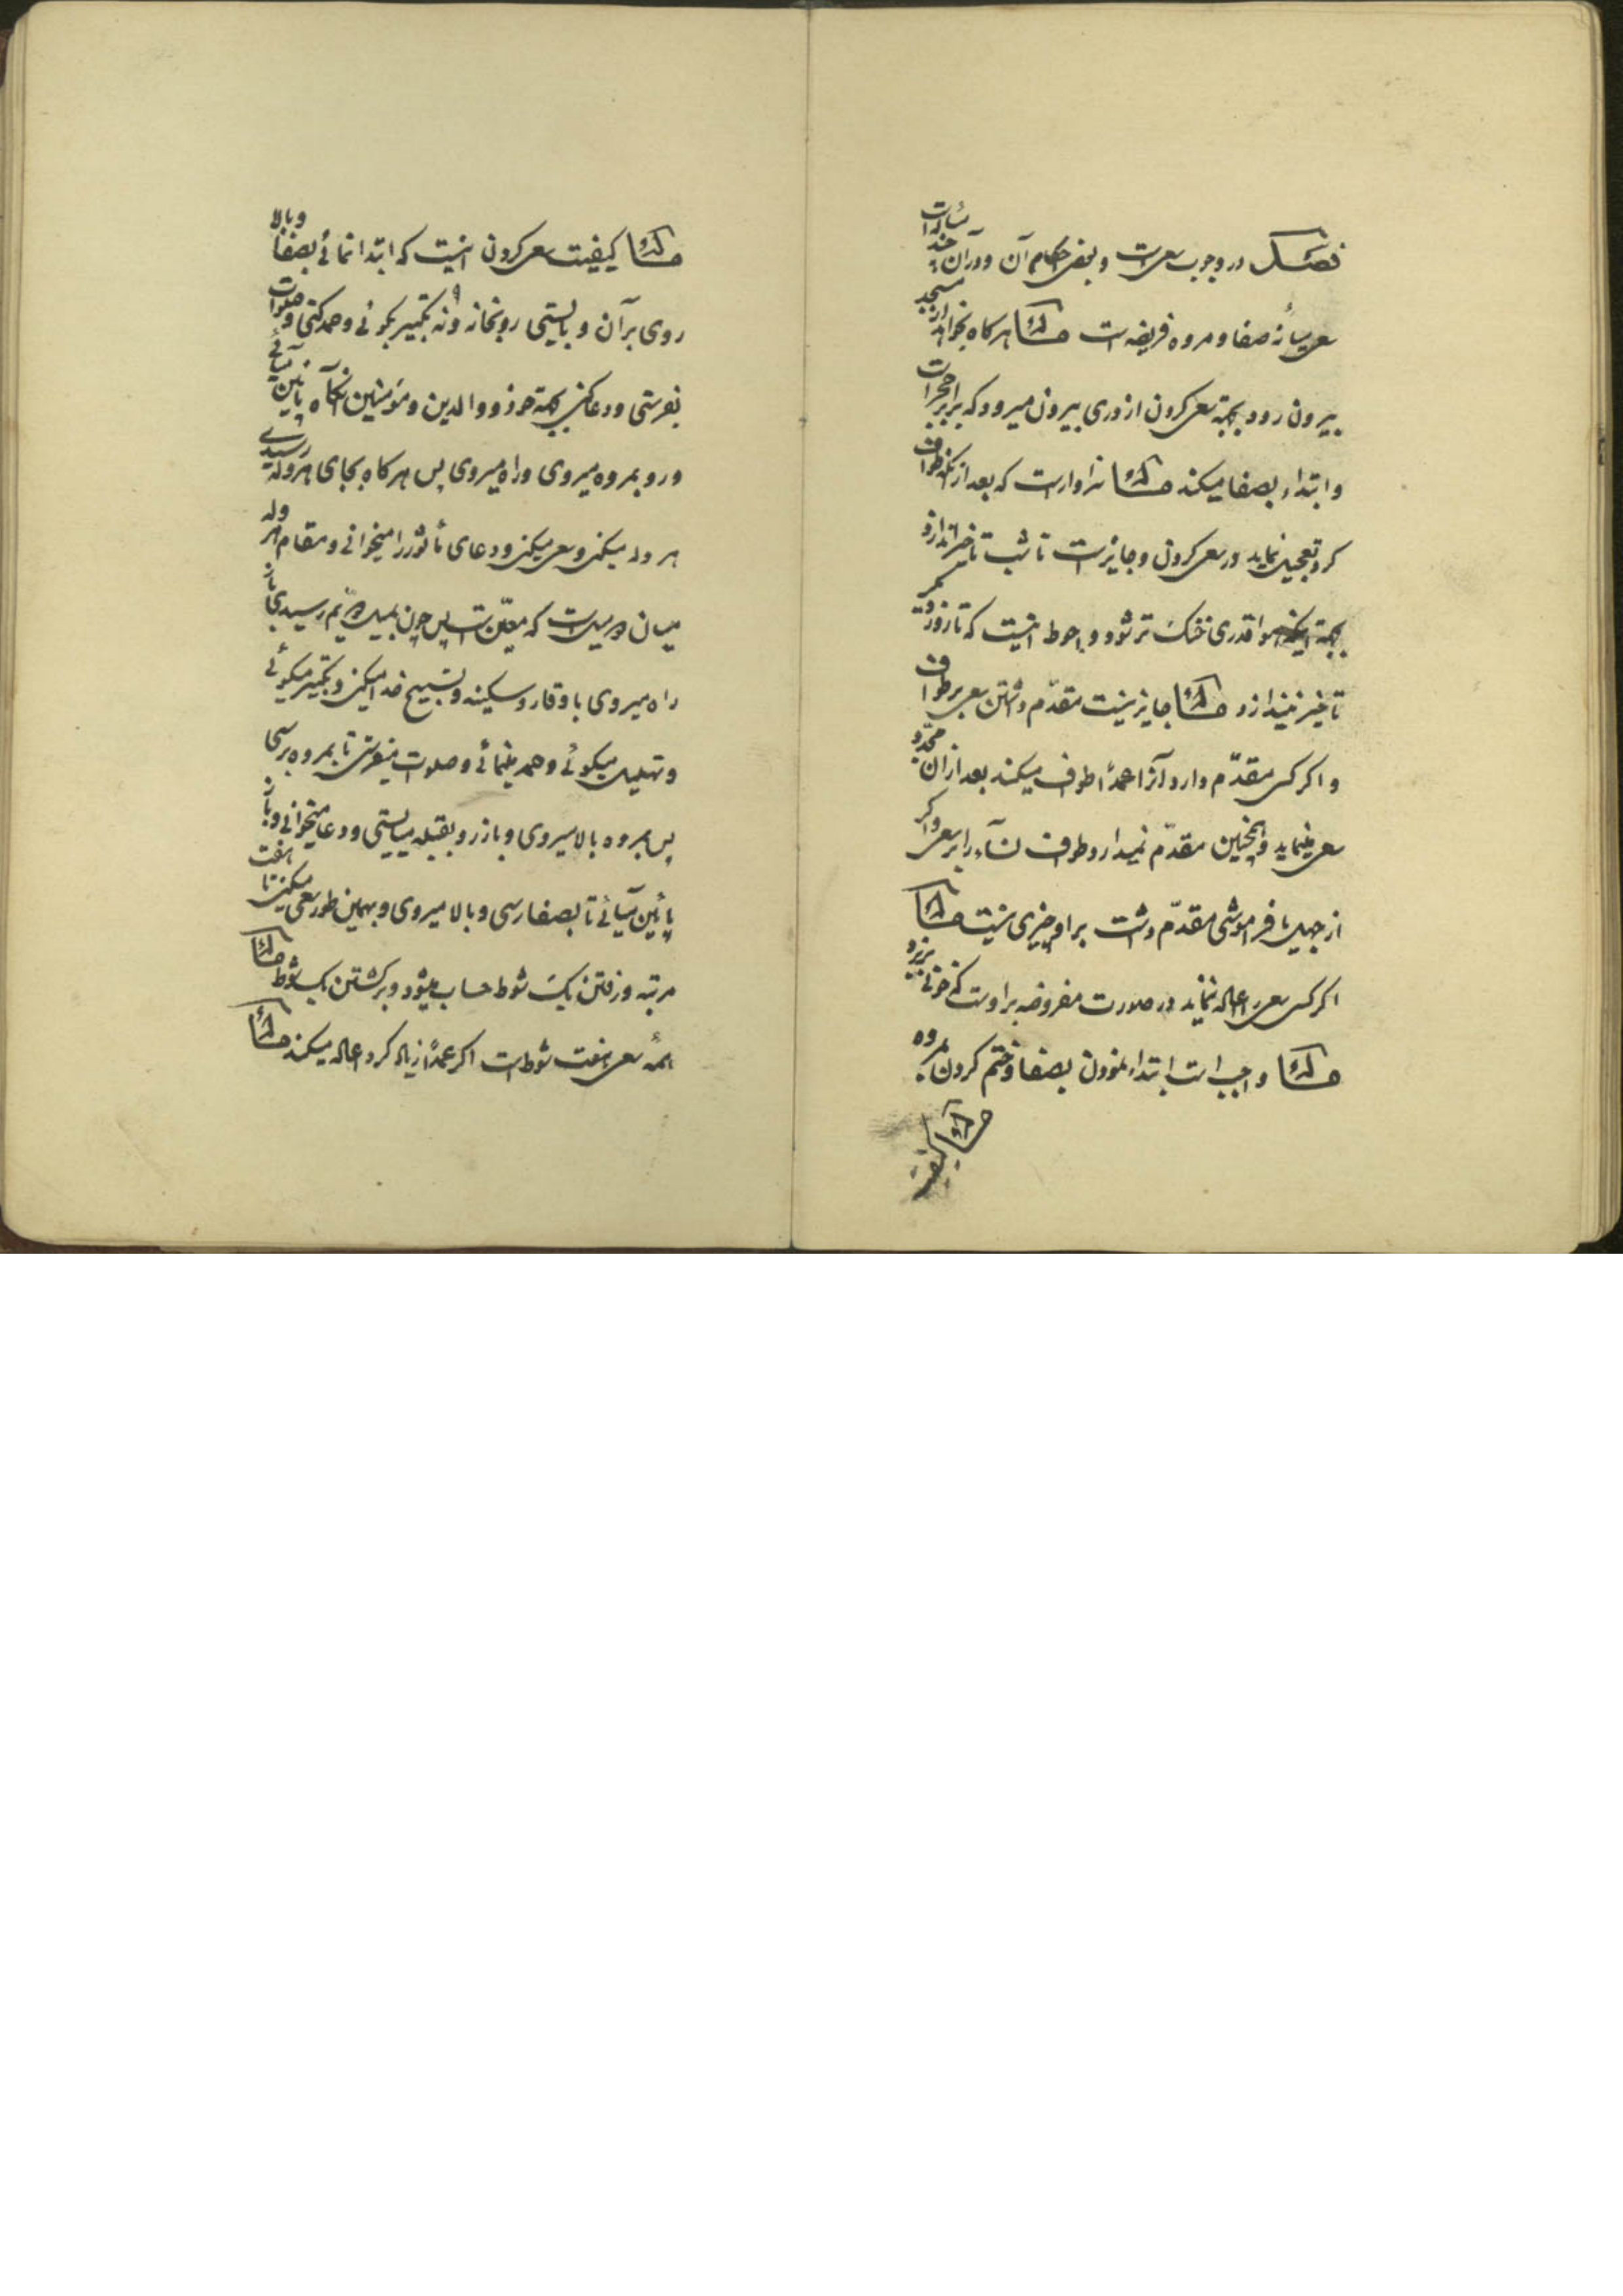 فصل در وجوب سعی است و بعض احکام آن و در آن چند مسئله است
سعی میانهٔ صفا و مروه فریضه است مسئلة هر کاه بخواهد از مسجد
بیرون رود بجهة سعی کردن از دری بیرون میرود که برابر حجر است
و ابتداء بصفا میکند مسئلة سزاوار است که بعد از آنکه طواف
کرد تعجیل نماید در سعی کردن و جایز است تا شب تاخیر اندازد
بجهة اینکه هوا قدری خنک تر شود و احوط اینست که تا روز دیگر
تاخیر نیندازد مسئلة جایز نیست مقدّم داشتن سعی بر طواف
و اکر کسی مقدّم دارد آنرا عمدًا طواف میکند بعد از آن مجدّد
سعی مینماید و همچنین مقدّم نمیدارد طواف نسآء را بر سعی و اکر
از جهل یا فراموشی مقدّم داشت بر او چیزی نیست مسئلة
اکر کسی سعی را اعاله ننماید در صورت مفروضه بر اوست که خونی بریزد
مسئلة واجب است ابتداء نمودن بصفا و ختم کردن بمروه
مسئلة کیفیت
مسئلة کیفیت سعی کردن اینست که ابتدا نمائی بصفا و بالا
روی بر آن و بایستی رو بخانه و نه تکبیر بکوئی و حمد کنی و صلوات
بفرستی و دعا کنی بجهة خود و والدین و مؤمنین آنکاه پائین میآئی
و رو بمروه میروی و راه میروی پس هر کاه بجای هروله رسیدی
هروله میکنی و سعی میکنی و دعای مأثور را میخوانی و مقام هروله
میان دو میل است که معیّن است پس چون بمیل دویّم رسیدی باز
راه میروی با وقار و سکینه و تسبیح خدا میکنی و تکبیر میکوئی
و تهلیل میکوئی و حمد مینمائی و صلوات میفرستی تا بمروه برسی
پس بمروه بالا میروی و باز رو بقبله میایستی و دعا میخوانی و باز
پائین میآئی تا بصفا رسی و بالا میروی و بهمین طور سعی میکنی تا هفت
مرتبه و رفتن یک شوط حساب میشود و برکشتن یک شوط مسئلة
همهٔ سعی هفت شوط است اکر عمدًا زیاله کرد اعاله میکند مسئلة